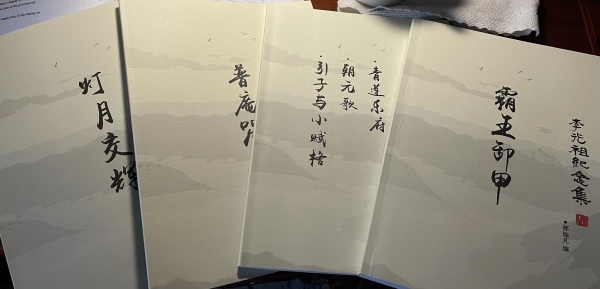 灯月交辉
普庵咒
·青莲乐府
·朝元歌
·引子与小赋格
霸王卸甲
李光祖紀念集